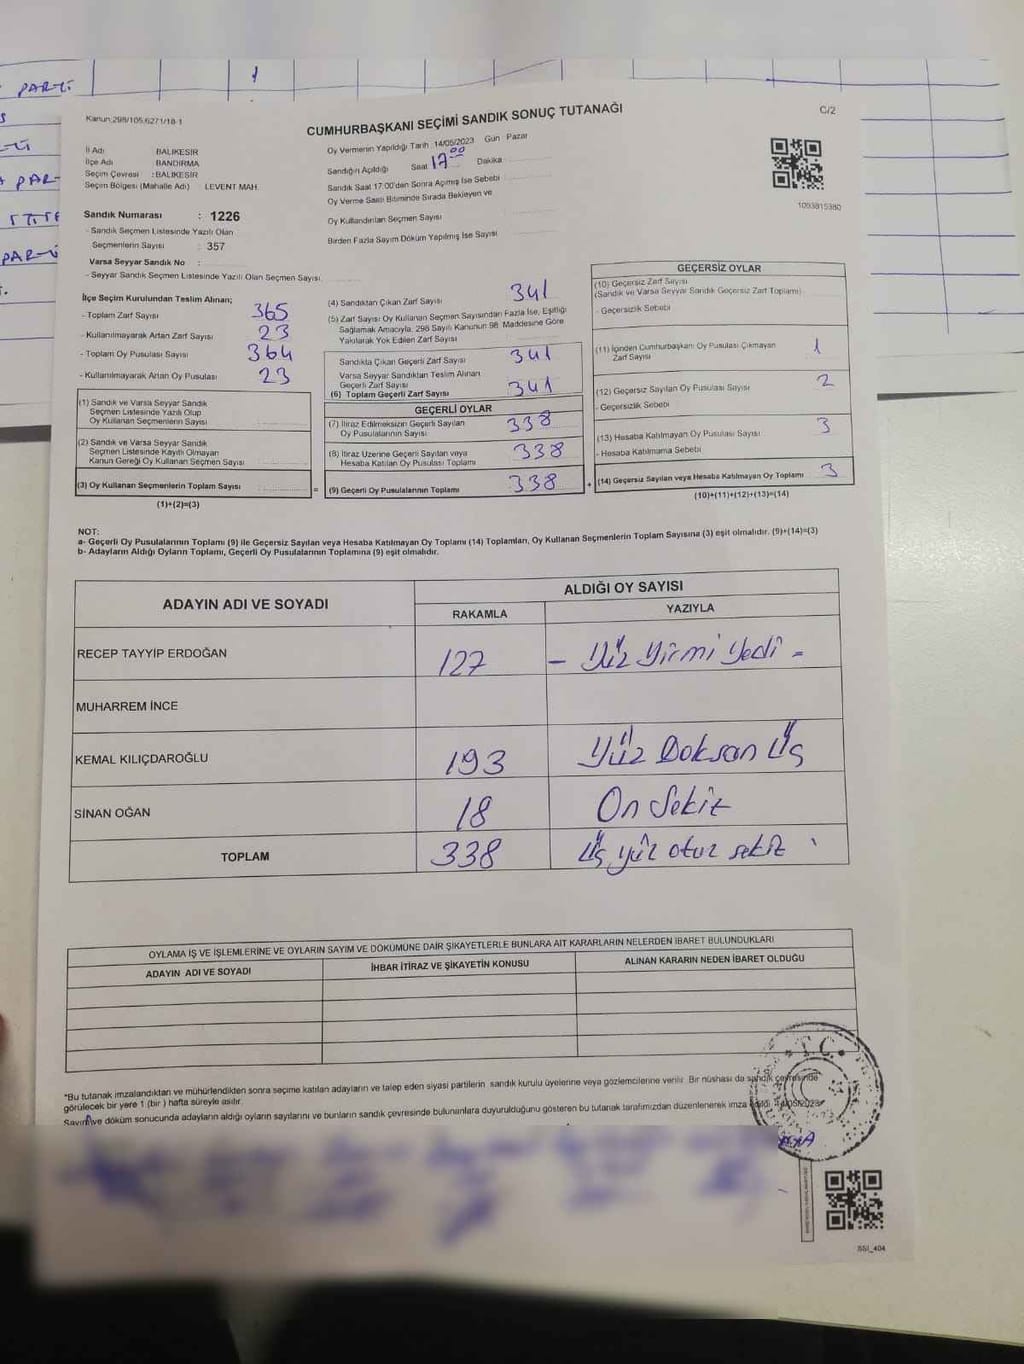 PARTİ
1
PAR
PARTİ
Kanun:298/105,6271/18-1
CUMHURBAŞKANI SEÇİMİ SANDIK SONUÇ TUTANAĞI
C/2
İl Adı : BALIKESİR
İlçe Adı : BANDIRMA
Seçim Çevresi : BALIKESİR
Seçim Bölgesi (Mahalle Adı) LEVENT MAH.
Oy Vermenin Yapıldığı Tarih : 14/05/2023 Gün : Pazar
Sandığın Açıldığı Saat 17 00 Dakika
Sandık Saat 17:00'den Sonra Açılmış İse Sebebi
Oy Verme Saati Bitiminde Sırada Bekleyen ve
Oy Kullandırılan Seçmen Sayısı
Birden Fazla Sayım Döküm Yapılmış İse Sayısı
1093815380
Sandık Numarası : 1226
- Sandık Seçmen Listesinde Yazılı Olan
Seçmenlerin Sayısı : 357
Varsa Seyyar Sandık No :
- Seyyar Sandık Seçmen Listesinde Yazılı Olan Seçmen Sayısı
İlçe Seçim Kurulundan Teslim Alınan;
- Toplam Zarf Sayısı 365
- Kullanılmayarak Artan Zarf Sayısı 23
- Toplam Oy Pusulası Sayısı 364
- Kullanılmayarak Artan Oy Pusulası 23
(1) Sandık ve Varsa Seyyar Sandık
Seçmen Listesinde Yazılı Olup
Oy Kullanan Seçmenlerin Sayısı
(2) Sandık ve Varsa Seyyar Sandık
Seçmen Listesinde Kayıtlı Olmayan
Kanun Gereği Oy Kullanan Seçmen Sayısı
(3) Oy Kullanan Seçmenlerin Toplam Sayısı
(1)+(2)=(3)
=
(4) Sandıktan Çıkan Zarf Sayısı 341
(5) Zarf Sayısı Oy Kullanan Seçmen Sayısından Fazla İse, Eşitliği
Sağlamak Amacıyla, 298 Sayılı Kanunun 98. Maddesine Göre
Yakılarak Yok Edilen Zarf Sayısı
Sandıkta Çıkan Geçerli Zarf Sayısı 341
Varsa Seyyar Sandıktan Teslim Alınan
Geçerli Zarf Sayısı
(6) Toplam Geçerli Zarf Sayısı 341
GEÇERLİ OYLAR
(7) İtiraz Edilmeksizin Geçerli Sayılan
Oy Pusulalarının Sayısı 338
(8) İtiraz Üzerine Geçerli Sayılan veya
Hesaba Katılan Oy Pusulası Toplamı 338
(9) Geçerli Oy Pusulalarının Toplamı 338
+
GEÇERSİZ OYLAR
(10) Geçersiz Zarf Sayısı
(Sandık ve Varsa Seyyar Sandık Geçersiz Zarf Toplamı)
- Geçersizlik Sebebi
(11) İçinden Cumhurbaşkanı Oy Pusulası Çıkmayan
Zarf Sayısı 1
(12) Geçersiz Sayılan Oy Pusulası Sayısı 2
- Geçersizlik Sebebi
(13) Hesaba Katılmayan Oy Pusulası Sayısı 3
- Hesaba Katılmama Sebebi
(14) Geçersiz Sayılan veya Hesaba Katılmayan Oy Toplamı 3
(10)+(11)+(12)+(13)=(14)
NOT:
a- Geçerli Oy Pusulalarının Toplamı (9) ile Geçersiz Sayılan veya Hesaba Katılmayan Oy Toplamı (14) Toplamları, Oy Kullanan Seçmenlerin Toplam Sayısına (3) eşit olmalıdır. (9)+(14)=(3)
b- Adayların Aldığı Oyların Toplamı, Geçerli Oy Pusulalarının Toplamına (9) eşit olmalıdır.
ADAYIN ADI VE SOYADI
ALDIĞI OY SAYISI
RAKAMLA YAZIYLA
RECEP TAYYİP ERDOĞAN 127 - Yüz Yirmi Yedi -
MUHARREM İNCE
KEMAL KILIÇDAROĞLU 193 Yüz Doksan Üç
SİNAN OĞAN 18 On Sekiz
TOPLAM 338 Üç yüz otuz sekiz
OYLAMA İŞ VE İŞLEMLERİNE VE OYLARIN SAYIM VE DÖKÜMÜNE DAİR ŞİKAYETLERLE BUNLARA AİT KARARLARIN NELERDEN İBARET BULUNDUKLARI
ADAYIN ADI VE SOYADI İHBAR İTİRAZ VE ŞİKAYETİN KONUSU ALINAN KARARIN NEDEN İBARET OLDUĞU
*Bu tutanak imzalandıktan ve mühürlendikten sonra seçime katılan adayların ve talep eden siyasi partilerin sandık kurulu üyelerine veya gözlemcilerine verilir. Bir nüshası da sandık çevresinde
görülecek bir yere 1 (bir) hafta süreyle asılır.
Sayım ve döküm sonucunda adayların aldığı oyların sayılarını ve bunların sandık çevresinde bulunanlara duyurulduğunu gösteren bu tutanak tarafımızdan düzenlenerek imza
T.C.
SSI_404